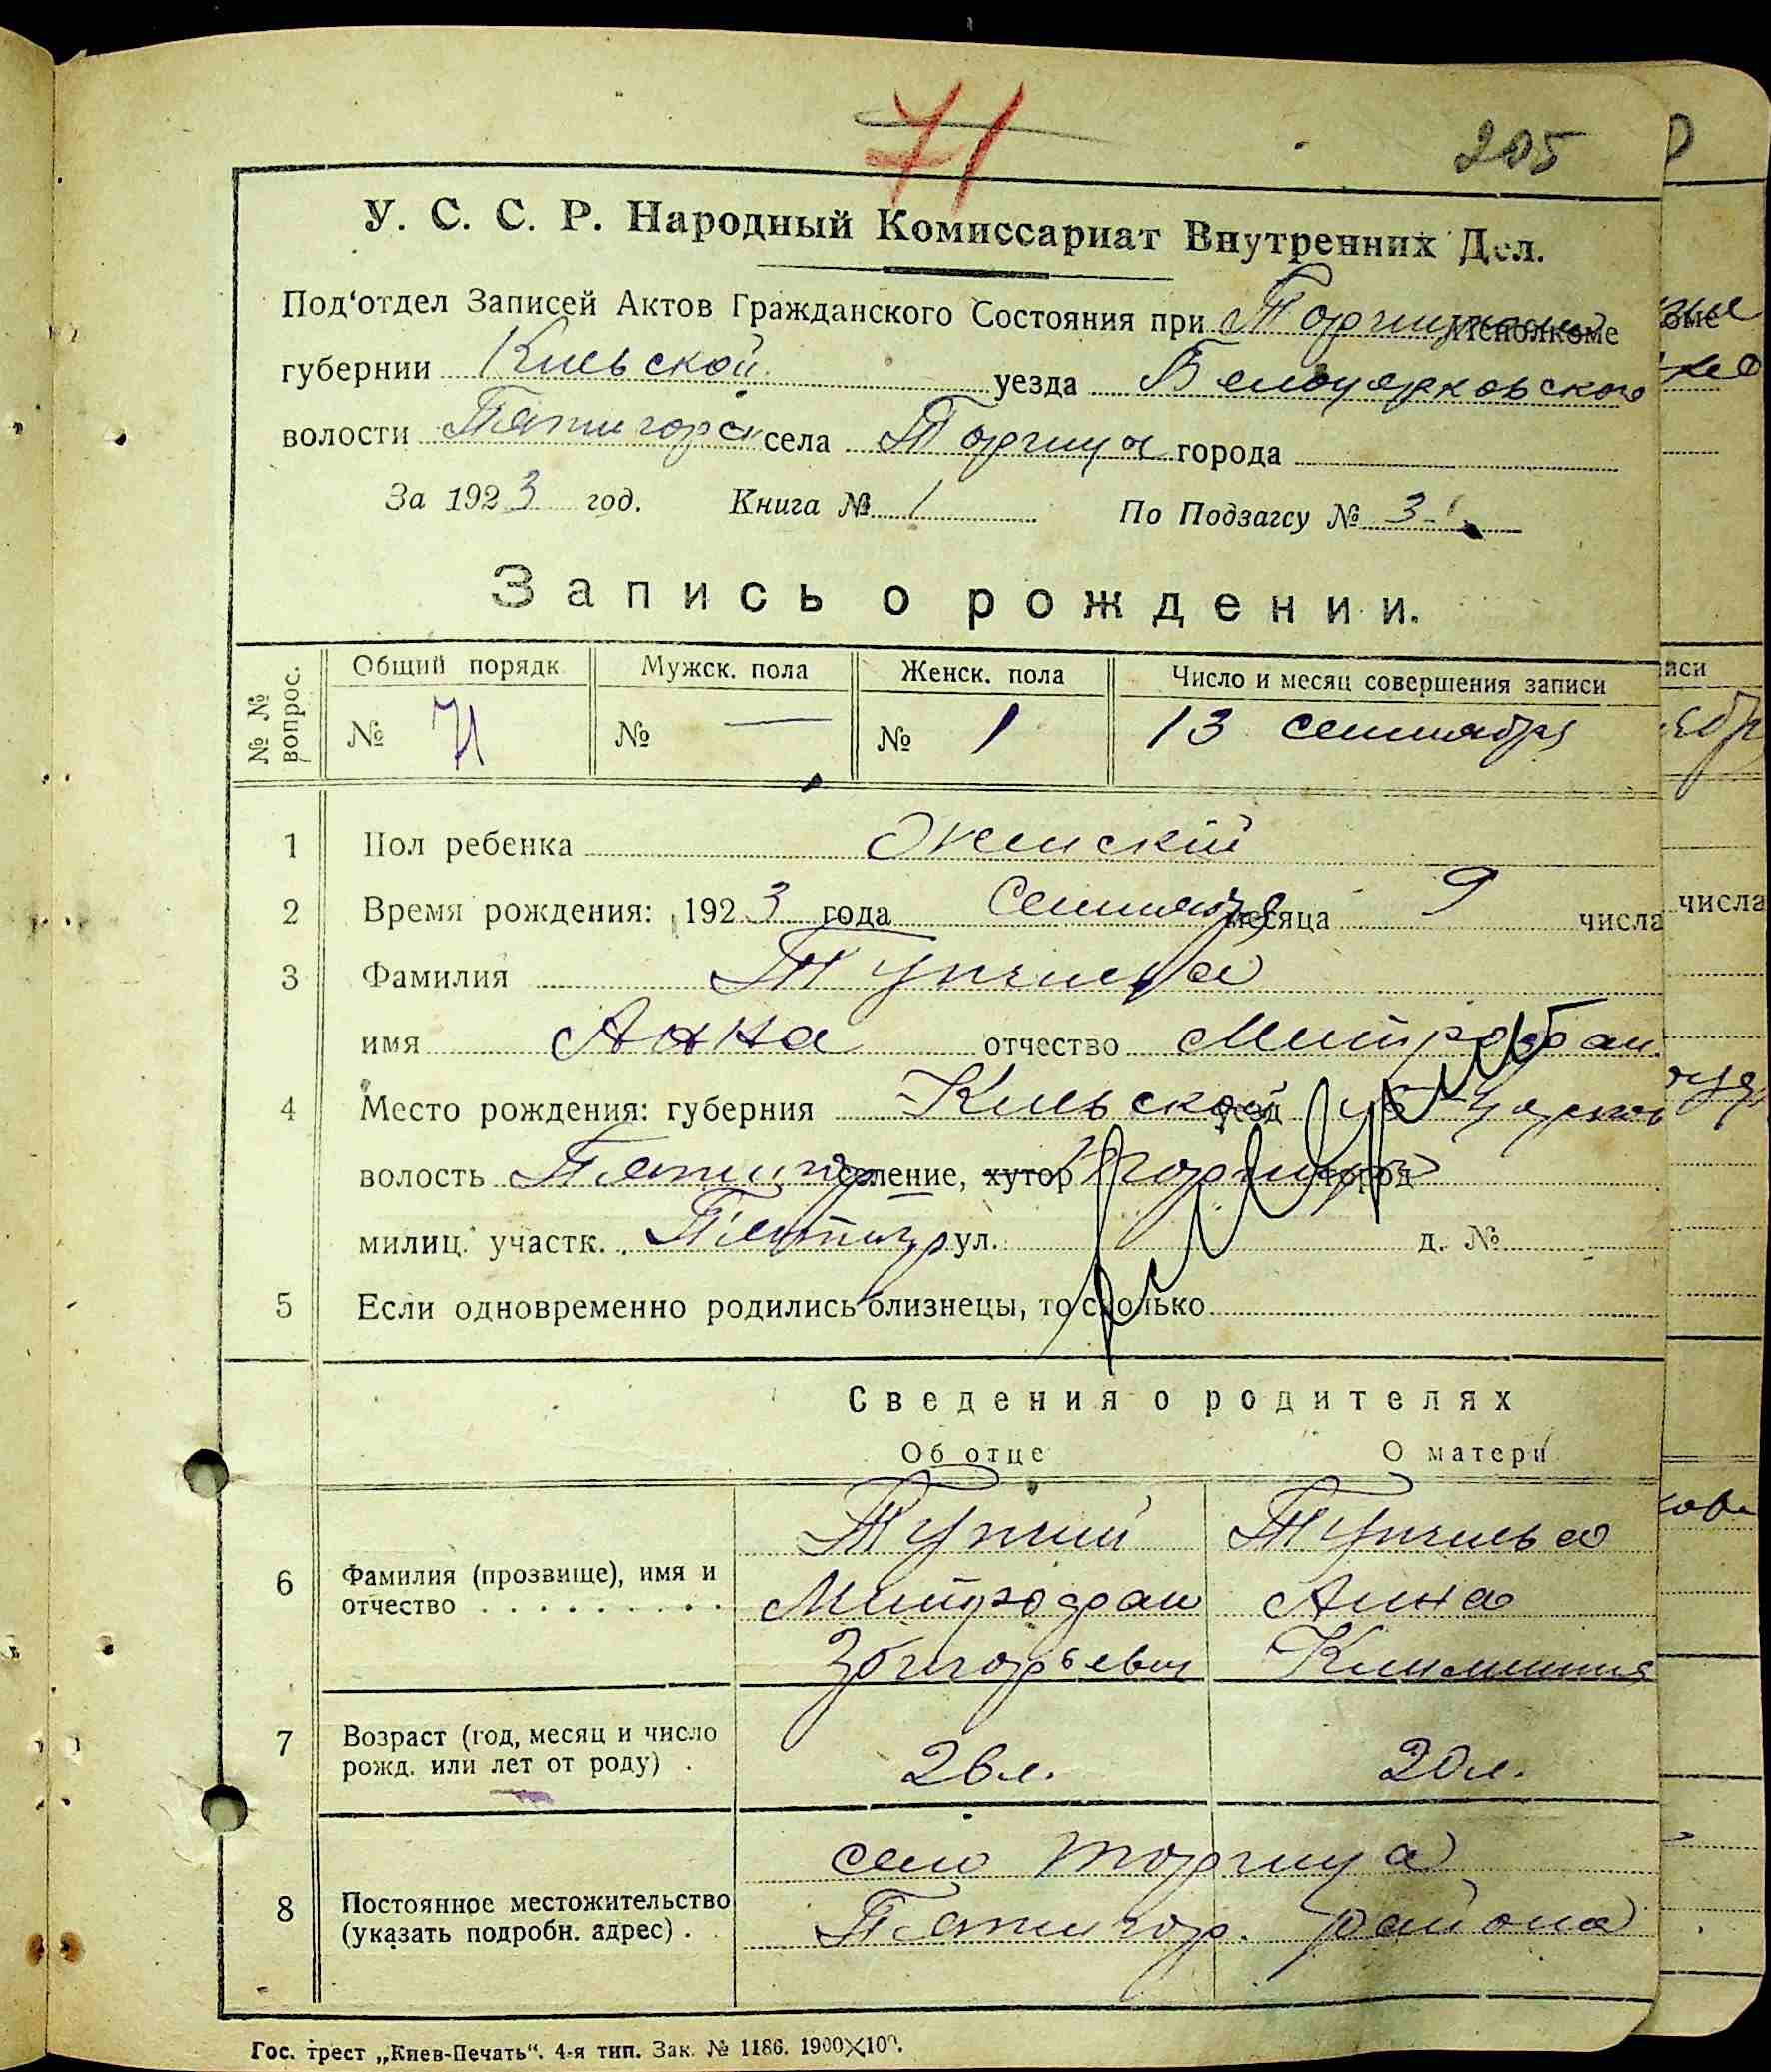 71
205
У. С. С. Р. Народный Комиссариат Внутренних Дел.
Под'отдел Записей Актов Гражданского Состояния при Исполкоме
губернии Киевской уезда Белоцерковского
волости Пятигорск села Торчица города
За 1923 год. Книга № 1 По Подзагсу № 3
Запись о рождении.
№ № вопрос. Общий порядк. Мужск. пола Женск. пола Число и месяц совершения записи
№ 71 № — № 1 13 сентября
1 Пол ребенка Женский
2 Время рождения: 1923 года Сентября месяца 9 числа
3 Фамилия
имя Анна отчество Митрофан.
4 Место рождения: губерния Киевской уезд
волость Пятигор селение, хутор Торчица город
милиц. участк. Пятигор ул. д. №
5 Если одновременно родились близнецы, то сколько
Сведения о родителях
Об отце О матери
6 Фамилия (прозвище), имя и отчество
Митрофан Анна
7 Возраст (год, месяц и число рожд. или лет от роду) 26 л. 20 л.
село Торчица
8 Постоянное местожительство (указать подробн. адрес) Пятигор. района
Гос. трест „Киев-Печать“. 4-я тип. Зак. № 1186. 1900X100.